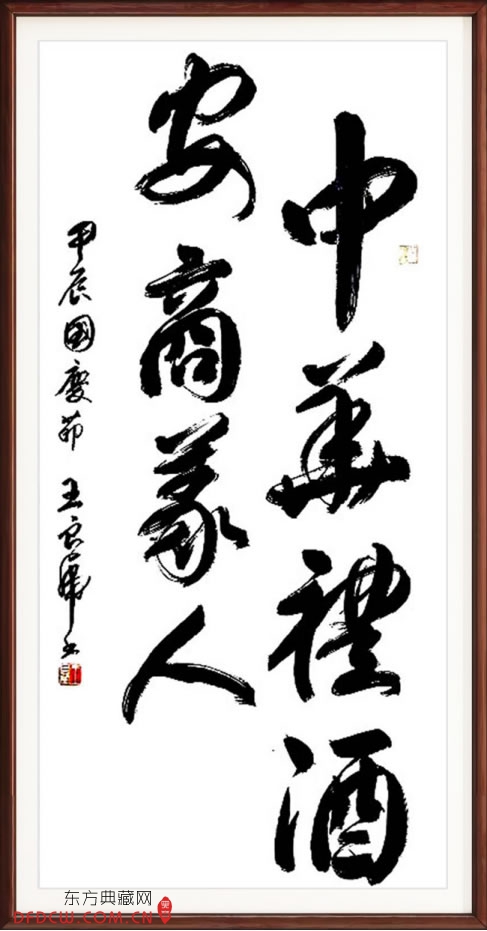 中華禮酒
安商義人
甲辰國慶節 王
东方典藏网
DFDCW.COM.CN